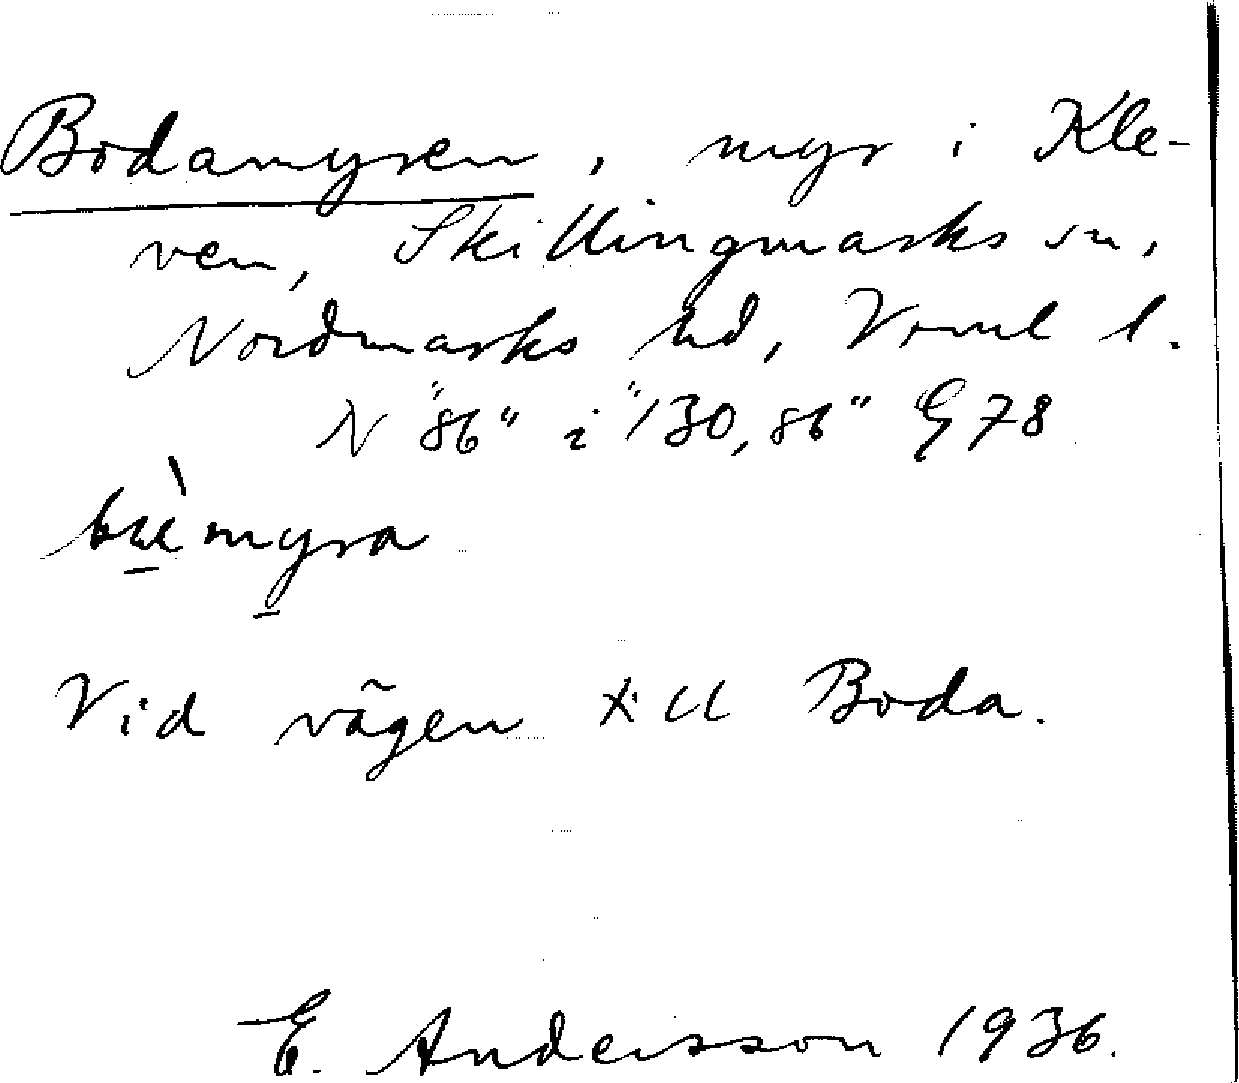 Bodamyren, myr i Kle-
ven, Skillingmarks sn,
Nordmarks hd, Vrml l.
N "86" i "130,86" G 78
myra
Vid vägen till Boda.
E. Andersson 1936.